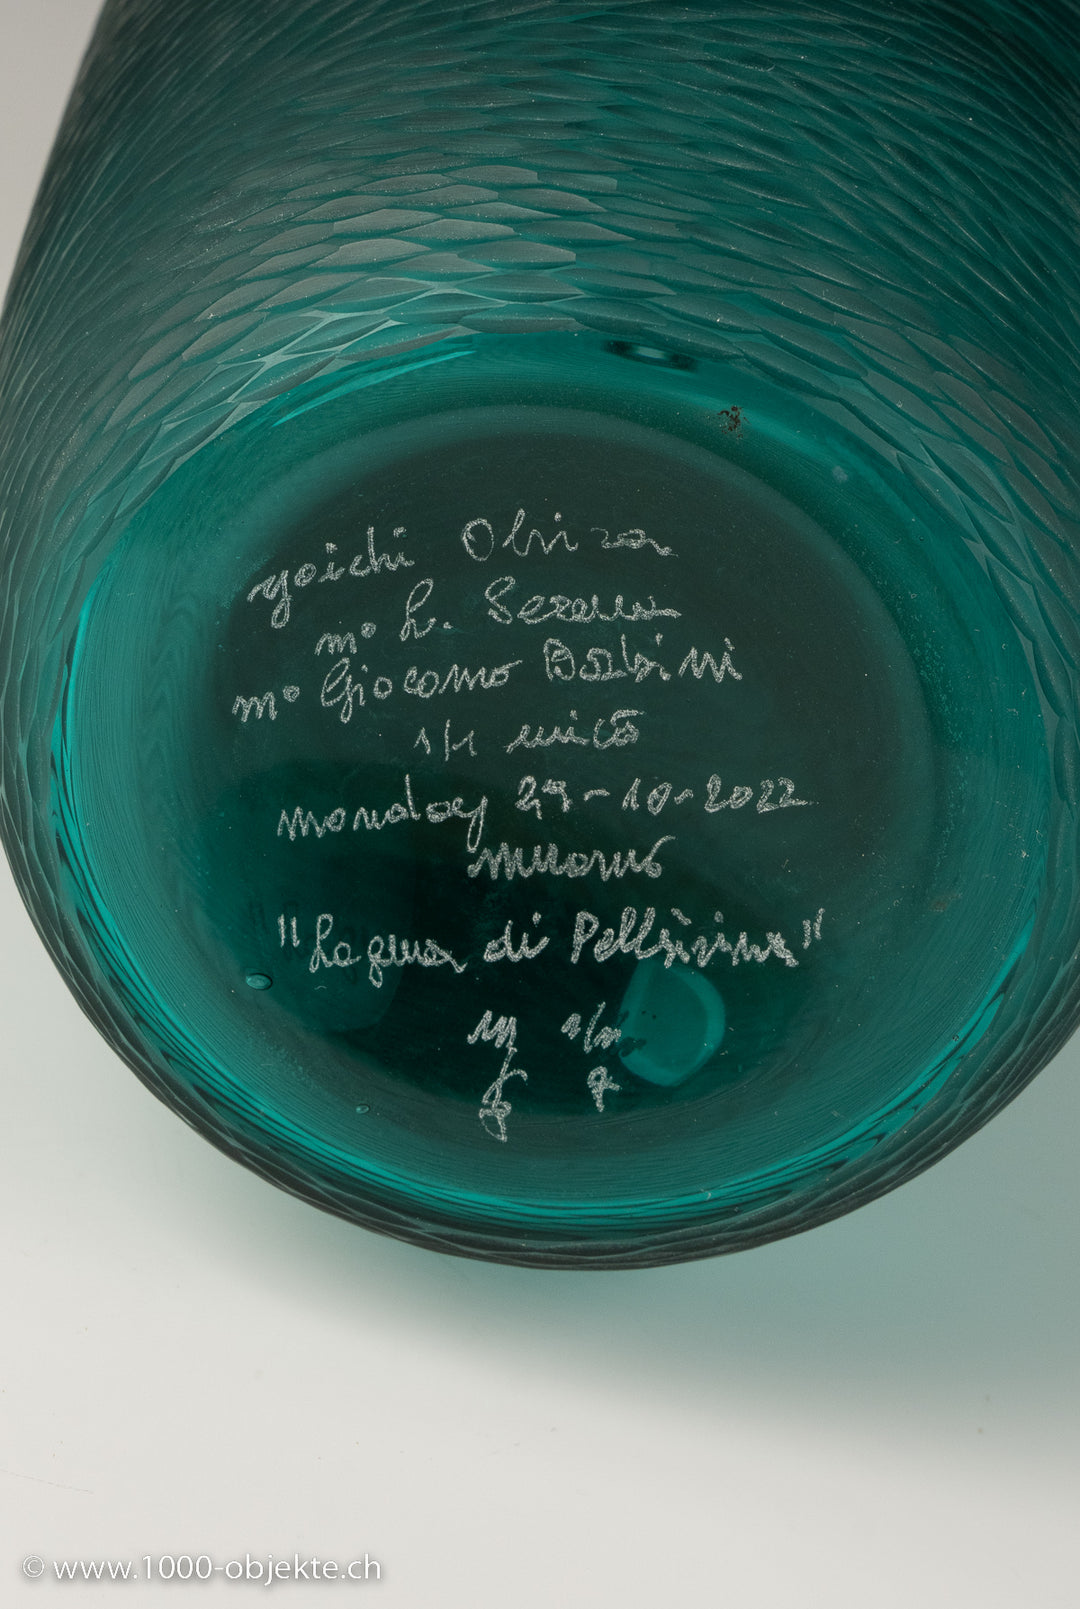 yoichi Ohira
m° L. Serena
m° Giacomo Barbini
1/1 unico
monday 29-10-2022
murano
"Laguna di Pellestrina"
m 1/1
© www.1000-objekte.ch